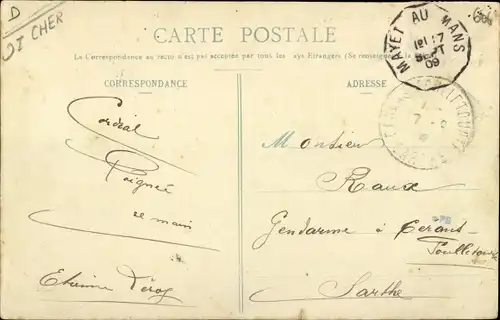 D
DT CHER
60
CARTE POSTALE
La Correspondance au recto n'est pas acceptée par tous les pays Etrangers (Se renseigner
CORRESPONDANCE
ADRESSE
MAYET AU MANS
17
SEPT
09
Cordial
Poignée
de main
Etienne
Monsieur
Raux
Gendarme à Cerans-
Foulletourte
Sarthe